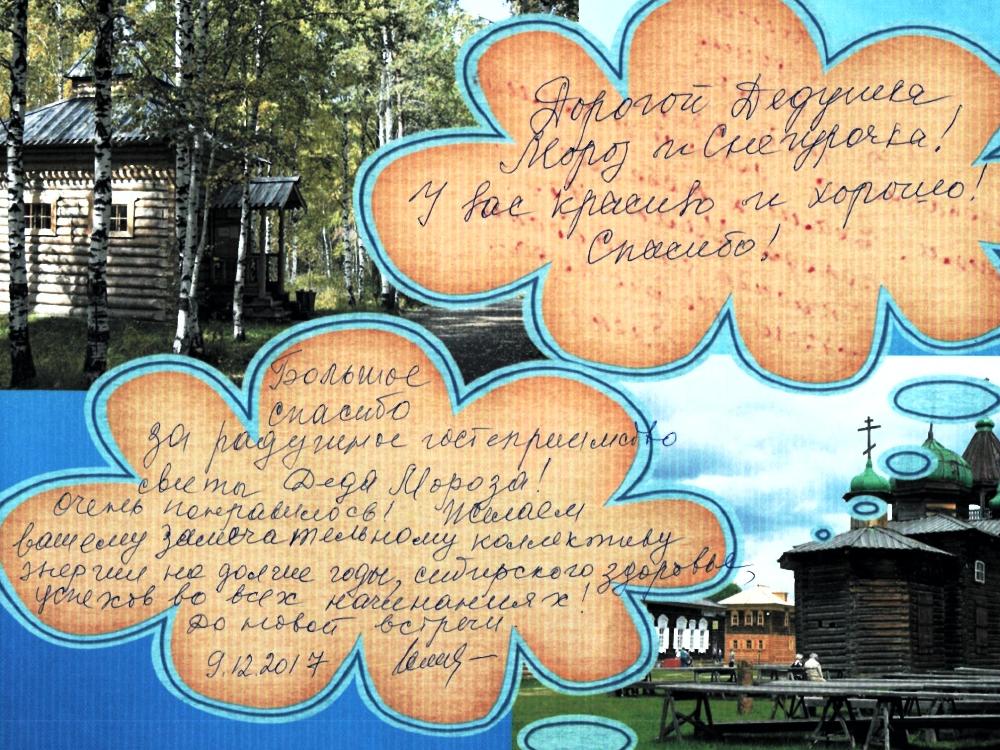 Дорогой Дедушка
Мороз и Снегурочка!
У вас красиво и хорошо!
Спасибо!
Большое
спасибо
за радушное гостеприимство
свиты Деда Мороза!
очень понравилось! Желаем
вашему замечательному коллективу
энергии на долгие годы, сибирского здоровья,
успехов во всех начинаниях!
До новой встречи
9.12.2017